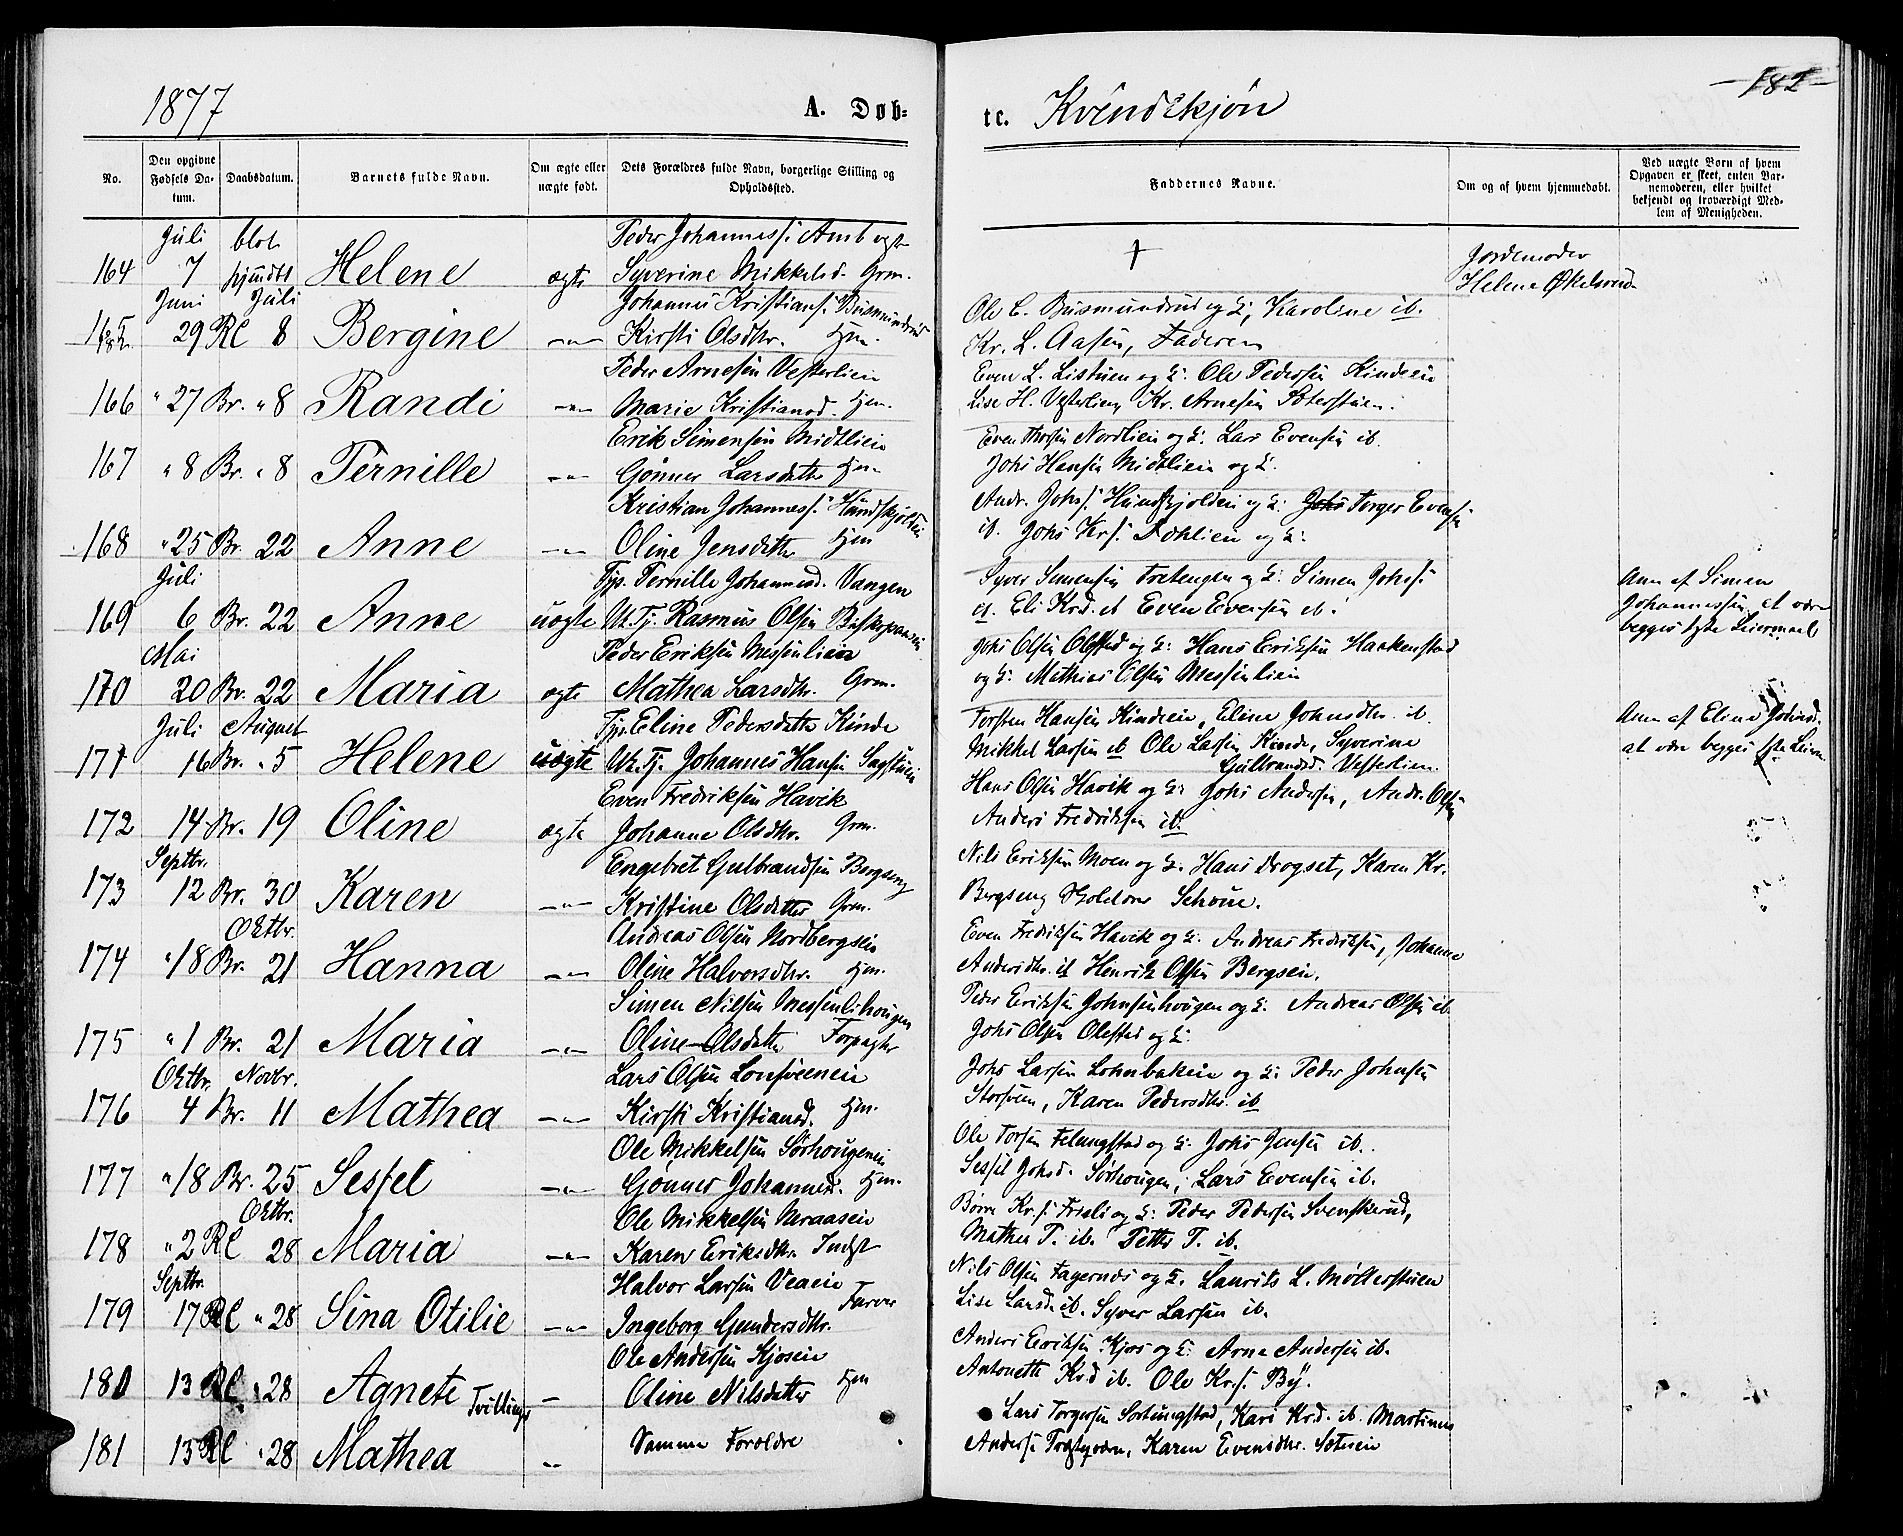 1877
A. Døb-
te. Kvindekjøn
182
No.
Den opgivne Fødsels Datum.
Daabsdatum.
Barnets fulde Navn.
Om ægte eller uægte født.
Dets Forældres fulde Navn, borgerlige Stilling og Opholdsted.
Faddernes Navne.
Om og af hvem hjemmedøbt.
Ved uægte Børn af hvem Opgaven er skeet, enten Barnemoderen, eller hvilket bekjendt og troværdigt Medlem af Menigheden.
Juli Peder Johanness.
164 7 Helene ægte Syverine Mikkelsd. Grm. † Jordemoder
Helene Økelsrud
Juni Juli Johannes Kristians. Busmundrud Ole C. Busmundrud og K; Karoline ib.
165 29 Rl 8 Bergine -"- Kirsti Olsdtr. Hjm. Kr. L. Aasen, Faderen
Peder Arnesen Vesterlien Even L. Listuen og K: Ole Pedersen
166 " 27 Br. " 8 Randi -"- Marie Kristiansd. Hjm. Lise H. Vesterlien, Kr. Arnesen
Erik Simensen Midtlien Even Thorsen Nordlien og K: Lars Evensen ib.
167 " 8 Br. " 8 Pernille -"- Gønner Larsdatter Hjm. Johs Hansen Midtlien og K.
Kristian Johanness. Andr. Johs. og K: Johs Torger Evensen
168 " 25 Br. 22 Anne -"- Oline Jensdatter Hjm ib. Johs Krs. Dæhlien og K:
Juli Tjp. Pernille Johannesd. Vangen Syver Simensen Tretengen og K: Simen Johs. Ann af Simen
169 6 Br. 22 Anne uægte U.Tj. Rasmus Olsen ib. Eli Krd. ib Even Evensen ib. Johannessen ib at være
begges 1ste Leiermaal
Mai Peder Eriksen Messenlien Johs Olsen Olestad og K: Hans Eriksen Haakenstad
170 20 Br. 22 Maria ægte Mathea Larsdtr. Grm. og K: Mathias Olsen Messenlien
Juli August Tjp. Eline Pedersdatter Kinde Torsten Hansen Kindeie, Eline Johnsdtr. ib. Ann af Eline
171 16 Br. " 5 Helene uægte U.Tj. Johannes Hansen Sagstuen Mikkel Larsen ib Ole Larsen Kinde, Syverine at være begges 1ste
Gulbrandsd. Vesterlien.
Even Fredriksen Havik Hans Olsen Havik og K: Johs Andersen, Andr. Olsen
172 14 Br. 19 Oline ægte Johanne Olsdtr. Grm. Anders Fredriksen ib.
Septbr. Engebret Gulbrandsen Bergseng Nils Eriksen Moen og K. Hans Drogset, Karen Kr.
173 12 Br. 30 Karen -"- Kristine Olsdatter Grm. Bergseng
Oktbr. Andreas Olsen Nordbergseie Even Fredriksen Havik og K. Andreas Fredriksen, Johanne
174 " 18 Br. 21 Hanna -"- Oline Halvorsdtr. Hjm. Andersdtr. ib Henrik Olsen Bergseie.
Simen Nilsen Messenlihougen Peder Eriksen Johnsenhougen og K: Andreas Olsen ib.
175 " 1 Br. 21 Maria -"- Oline Olsdatter Forpagter Johs Olsen Olestad og K:
Oktbr. Novbr. Lars Olsen Lonsveeneie Johs Larsen Lohnbakken og K: Peder Johnsen
176 4 Br. 11 Mathea -"- Kirsti Kristiansd. Hjm. Storsveen, Karen Pedersdtr. ib
Ole Mikkelsen Sørhougeneie Ole Torsen og K: Johs Jensen ib.
177 " 18 Br. 25 Sessel -"- Gønner Johannesd. Hjm. Sessel Johsd. Sørhougen, Lars Evensen ib.
Oktbr. Ole Mikkelsen Neraaseie Børre Kr.s. og K: Peder Pedersen Svenskerud,
178 " 2 Rl 28 Maria -"- Karen Eriksdtr. Indst Mathea P. ib. Petter P. ib.
Septbr. Halvor Larsen Nils Olsen Fagernæs og K. Laurits L. Møllerstuen
179 17 Rl " 28 Sina Otilie -"- Ingeborg Gundersdtr. Farver Lise Larsd. ib. Syver Larsen ib.
Ole Andersen Kjoseie Anders Eriksen Kjos og K: Arne Andersen ib.
180 13 Rl " 28 Agnete Tvillinger - Oline Nilsdatter Hjm Antonette Krd ib. Ole Kr.s. By.
Lars Torgersen Sortungstad, Kari Krd. ib. Martinus
181 13 Rl " 28 Mathea -"- Samme Forældre Anders. Karen Evensdtr.